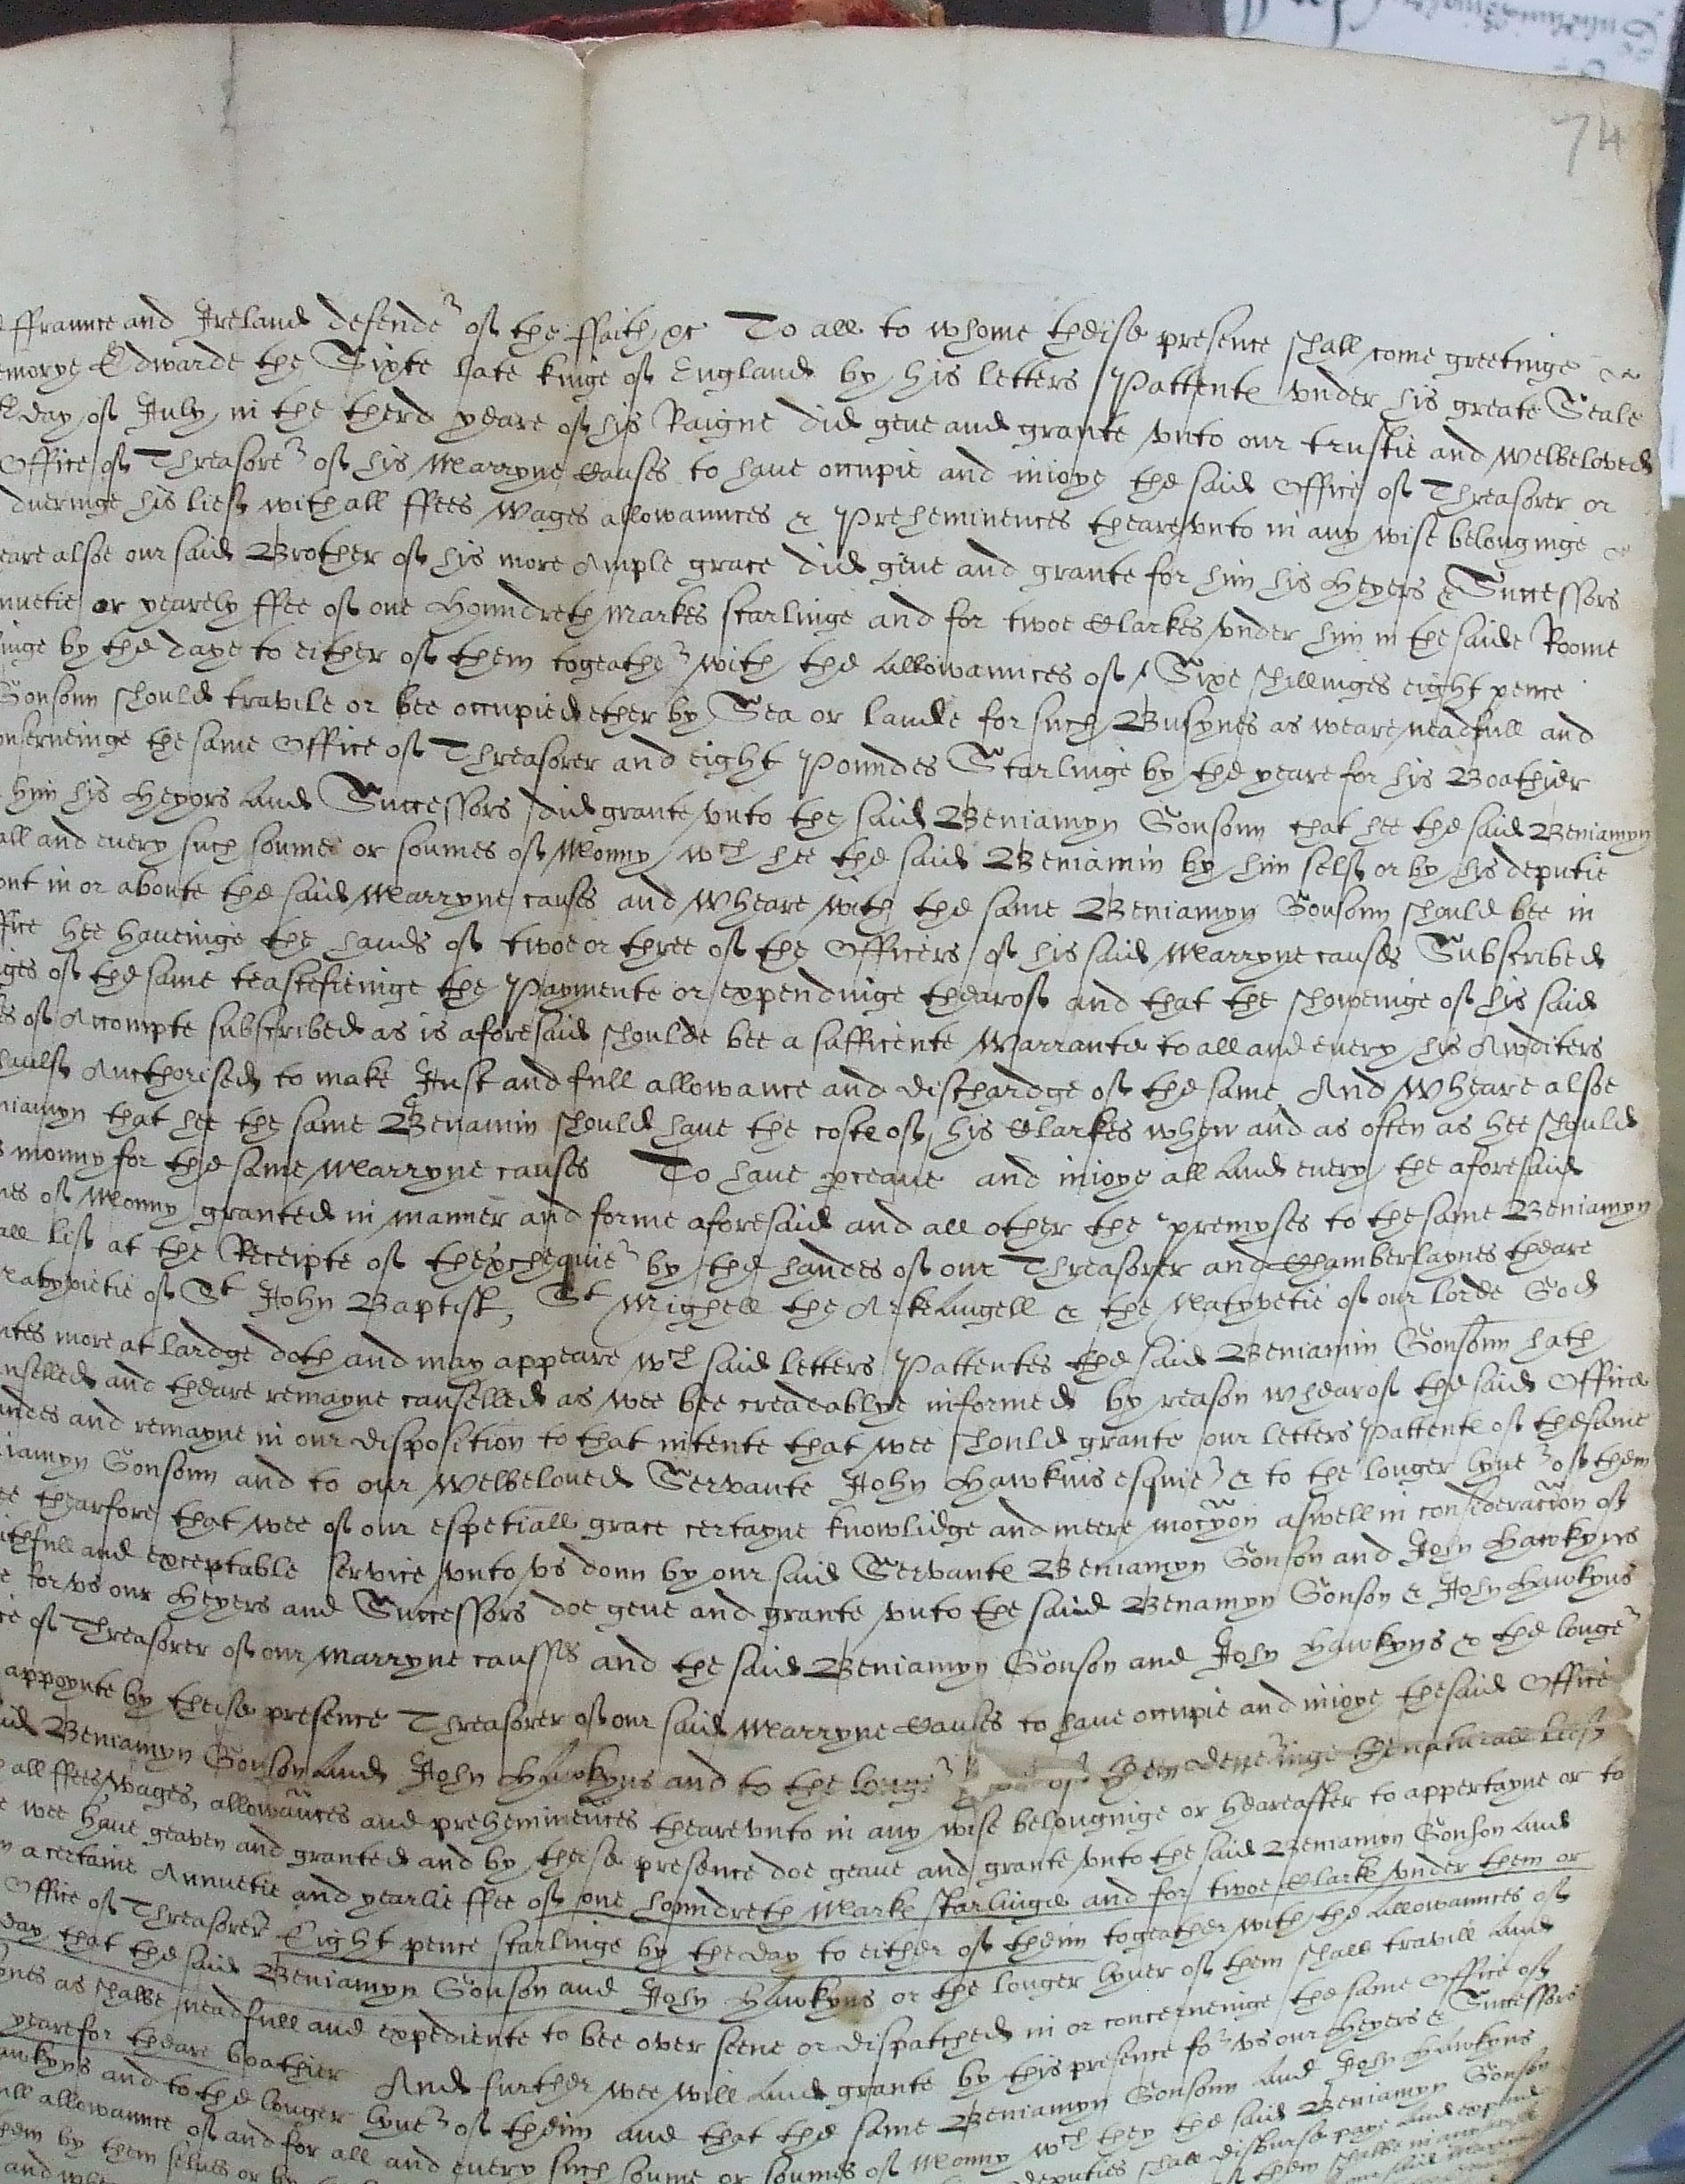 74
ffraunce and Ireland defender of the ffaith &c To all to whome theise presence shall come greetinge
emorye Edwarde the Sixte late kinge of England by his letters Pattente under his greate Seale
day of July in the therd yeare of his Raigne did geve and grante vnto our trustie and welbeloved
Office of Threasorer of his Marryne Causes to have occupie and inioye the said Office of Threasorer or
dueringe his lief with all ffees wages allowannces & Preheminences theare vnto in any wise belonginge &
eare alsoe our said Brother of his more Ample grace did geve and grante for him his Heyers & Successors
nuetie or yearely ffee of one Houndreth markes starlinge and for twoe Clarkes vnder him in the saide Roome
inge by the daye to either of them togeather with the Allowannces of Sixe shillinges eight pence
Gonsonn should travile or bee occupied ether by Sea or lande for such Busynes as weare neadfull and
onserneinge the same Office of Threasorer and eight Poundes Starlinge by the yeare for his Boathier
him his Heyors And Successors did grante vnto the said Beniamyn Gonsonn that hee the said Beniamyn
all and every such soume or soumes of Monny wch hee the said Beniamin by him self or by his deputie
ont in or aboute the said Marryne causes and wheare with the same Beniamyn Gonsonn should bee in
ffice hee haveinge the hands of twoe or three of the Officers of his said Marryne causes Subscribed
ges of the same teastefieinge the Paymente or expendinge thearof and that the showeinge of his said
es of Accompte subscribed as is aforesaid shoulde bee a sufficente Warrante to all and every his Awditers
haulf Aucthorised to make Just and full allowance and dischardge of the same And Wheare alsoe
niamyn that hee the same Benamin should have the coste of his Clarkes when and as often as hee should
monny for the same Marryne causes To have perceave and inioye all And every the aforesaid
nes of Monny granted in manner and forme aforesaid and all other the premyses to the same Beniamyn
all lif at the Receipte of thexchequier by the handes of our Threasorer and Chamberlaynes theare
Natyvietie of St John Baptist, St Mighell the Arkeangell & the Natyvetie of our lorde God
ntes more at lardge doth and may appeare wch said letters Pattentes the said Beniamin Gonsonn hath
nselled and theare remayne canselled as wee bee creadablye informed by reason whearof the said Office
andes and remayne in our disposition to that intente that wee should grante our letters Pattente of the same
iamyn Gonsonn and to our Welbeloved Servante John Hawkins esquier & to the longer lyver of them
ee thearfore that wee of our espetiall grace certayne knowlidge and meere mocyon aswell in consideracion of
ithfull and exceptable service vnto vs donn by our said Servante Beniamyn Gonson and John Hawkyns
e for vs our Heyers and Successors doe geve and grante vnto the said Benamyn Gonson & John Hawkyns
ce of Threasorer of our marryne causses and the said Beniamyn Gonson and John Hawkyns & the longer
appoynte by theise presence Threasorer of our said Marryne Causes to have occupie and inioye the said Office
id Beniamyn Gonson And John Hawkyns and to the longer of them dueringe naturall lief
all ffees, wages, allowannces and preheminences theare vnto in any wise belonginge or heareafter to appertayne or to
e wee have geaven and granted and by theise presence doe geave and grante vnto the said Beniamyn Gonson And
n a certaine Annuetie and yearlie ffee of one houndreth Marke starlinge and for twoe Clarke vnder them or
Office of Threasorer Eight pence starlinge by the day to either of them togeather with the Allowannces of
day that the said Beniamyn Gonson and John Hawkyns or the longer lyver of them shall travill And
ynes as shalbe neadfull and expediente to bee over seene or dispatched in or concerneinge the same Office of
yeare for theare boathier And further wee will And grante by this presence for vs our Heyers & Successors
awkyns and to the longer lyver of theim and that the same Beniamyn Gonsonn And John Hawkyns
ull allowannce of and for all and every such soume or soumes of Monny wch they the said Beniamyn Gonson
hem by them selves or by deputies shall disburse paye And expend
and them shalbe in